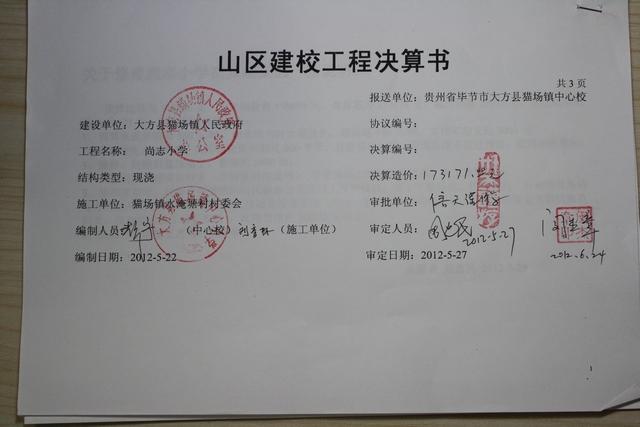 山区建校工程决算书
共 3 页
报送单位：贵州省毕节市大方县猫场镇中心校
建设单位：大方县猫场镇人民政府
协议编号：
工程名称： 尚志小学
决算编号：
结构类型：现浇
决算造价：173171.
施工单位：猫场镇水淹塘村村委会
审批单位：
编制人员： （中心校） （施工单位）
审定人员： 2012-5-27
编制日期：2012-5-22
审定日期：2012-5-27
2012.6.24
1